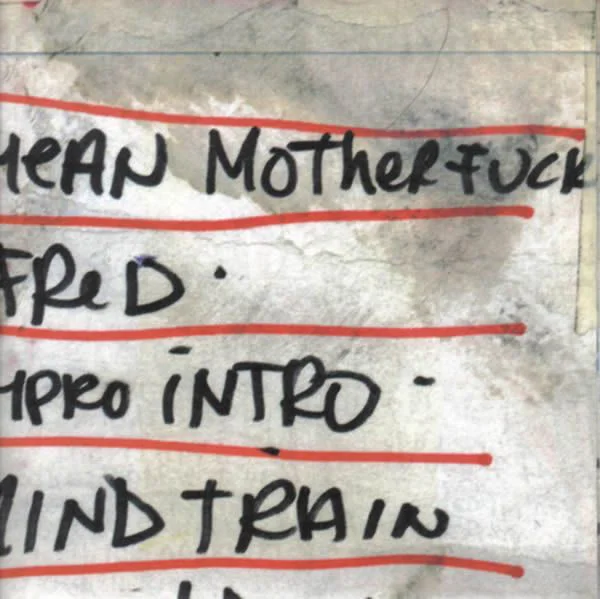 MeAN MotherFuck
FReD.
MPRO INTRO -
MIND TRAIN